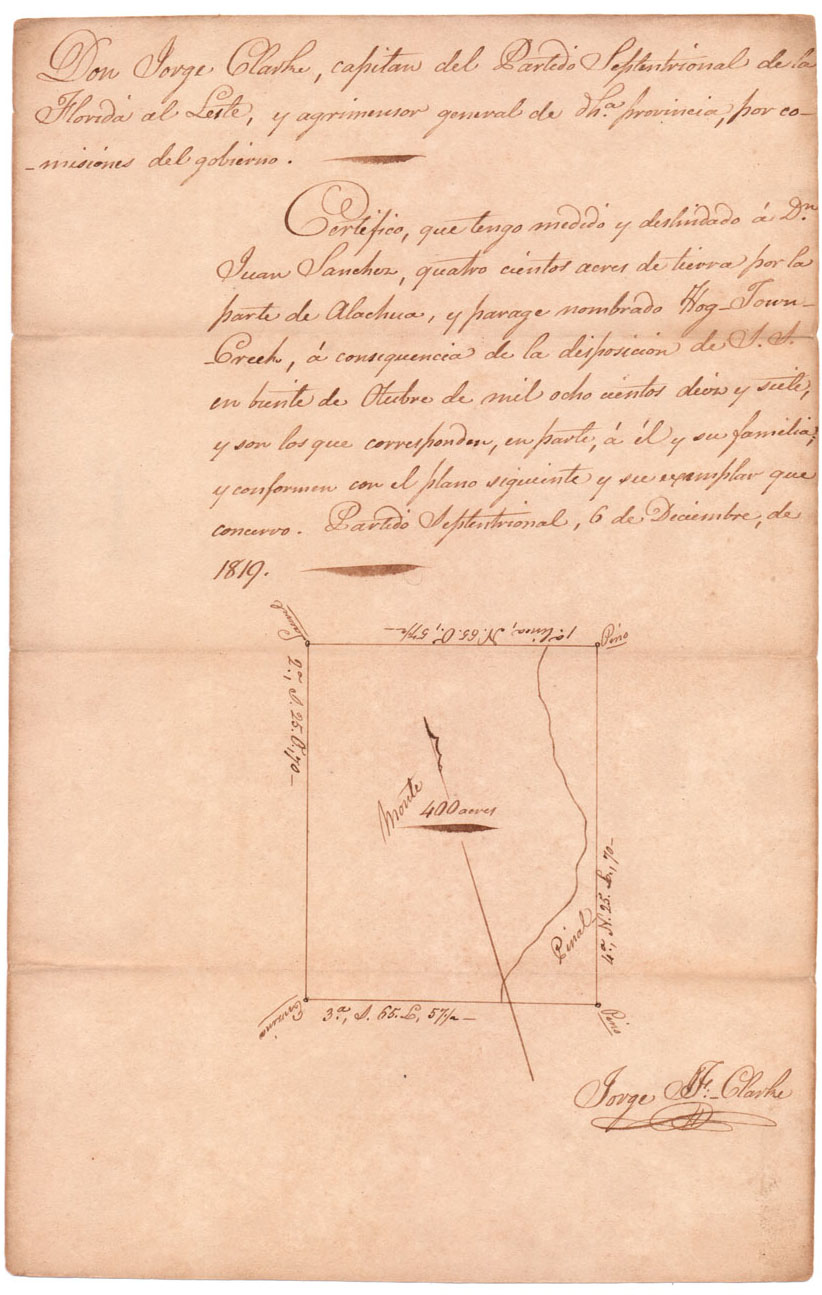 Don Jorge Clarke, capitan del Partido Septentrional de la
Florida al Leste, y agrimensor general de dha. provincia, por co-
-misiónes del gobierno.
Certifico, que tengo medido y deslindado á Dn.
Juan Sanchez, quatro cientos acres de tierra por la
parte de Alachua, y parage nombrado Hog-Town-
Creek, á consiquencia de la disposición de S. S.
en biente de Otubre de mil ocho cientos dieiz y siete,
y son los que corresponden, en parte, á él y su familia;
y conformen con el plano siguiente y su exemplar que
concervo. Partido Septentrional, 6 de Diciembre, de
1819.
Laurel
1a. linea, N. 65. O., 57½-
Pino
2a., S. 25. O., 70-
Monte
400 acres
Pinal
4a., N. 25. L., 70-
Encina
3a., S. 65. L., 57½-
Pino
Jorge J. F. Clarke